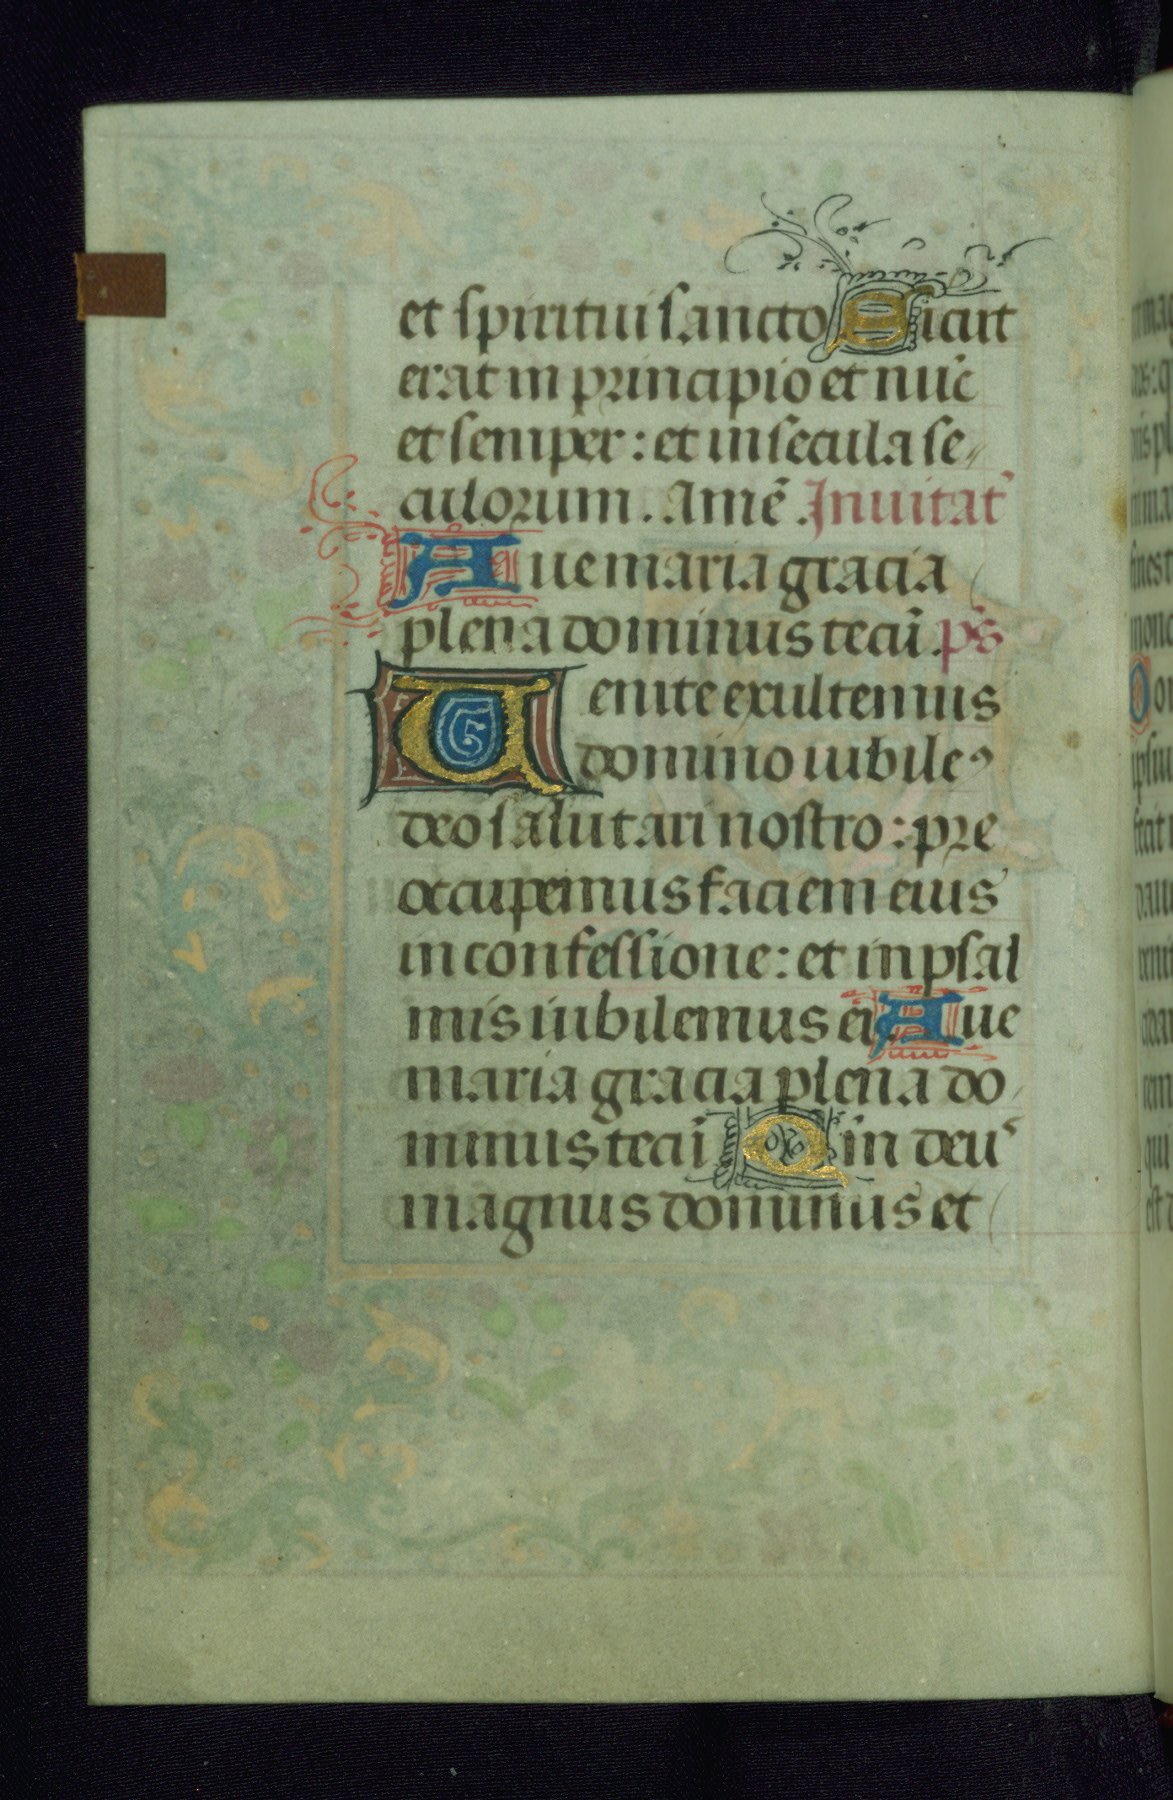 et spiritui sancto Sicut
erat in principio et nūc
et semper : et in secula se„
culorum . Amē . Inuitat᷑
Aue maria gracia
plena dominus tecū . ps̄
Uenite exultemus
domino iubileꝰ
deo salutari nostro : pre
occupemus faciem eius
in confessione : et in psal
mis iubilemus ei Aue
maria gracia plena do
minus tecū Qm̄ deus
magnus dominus et